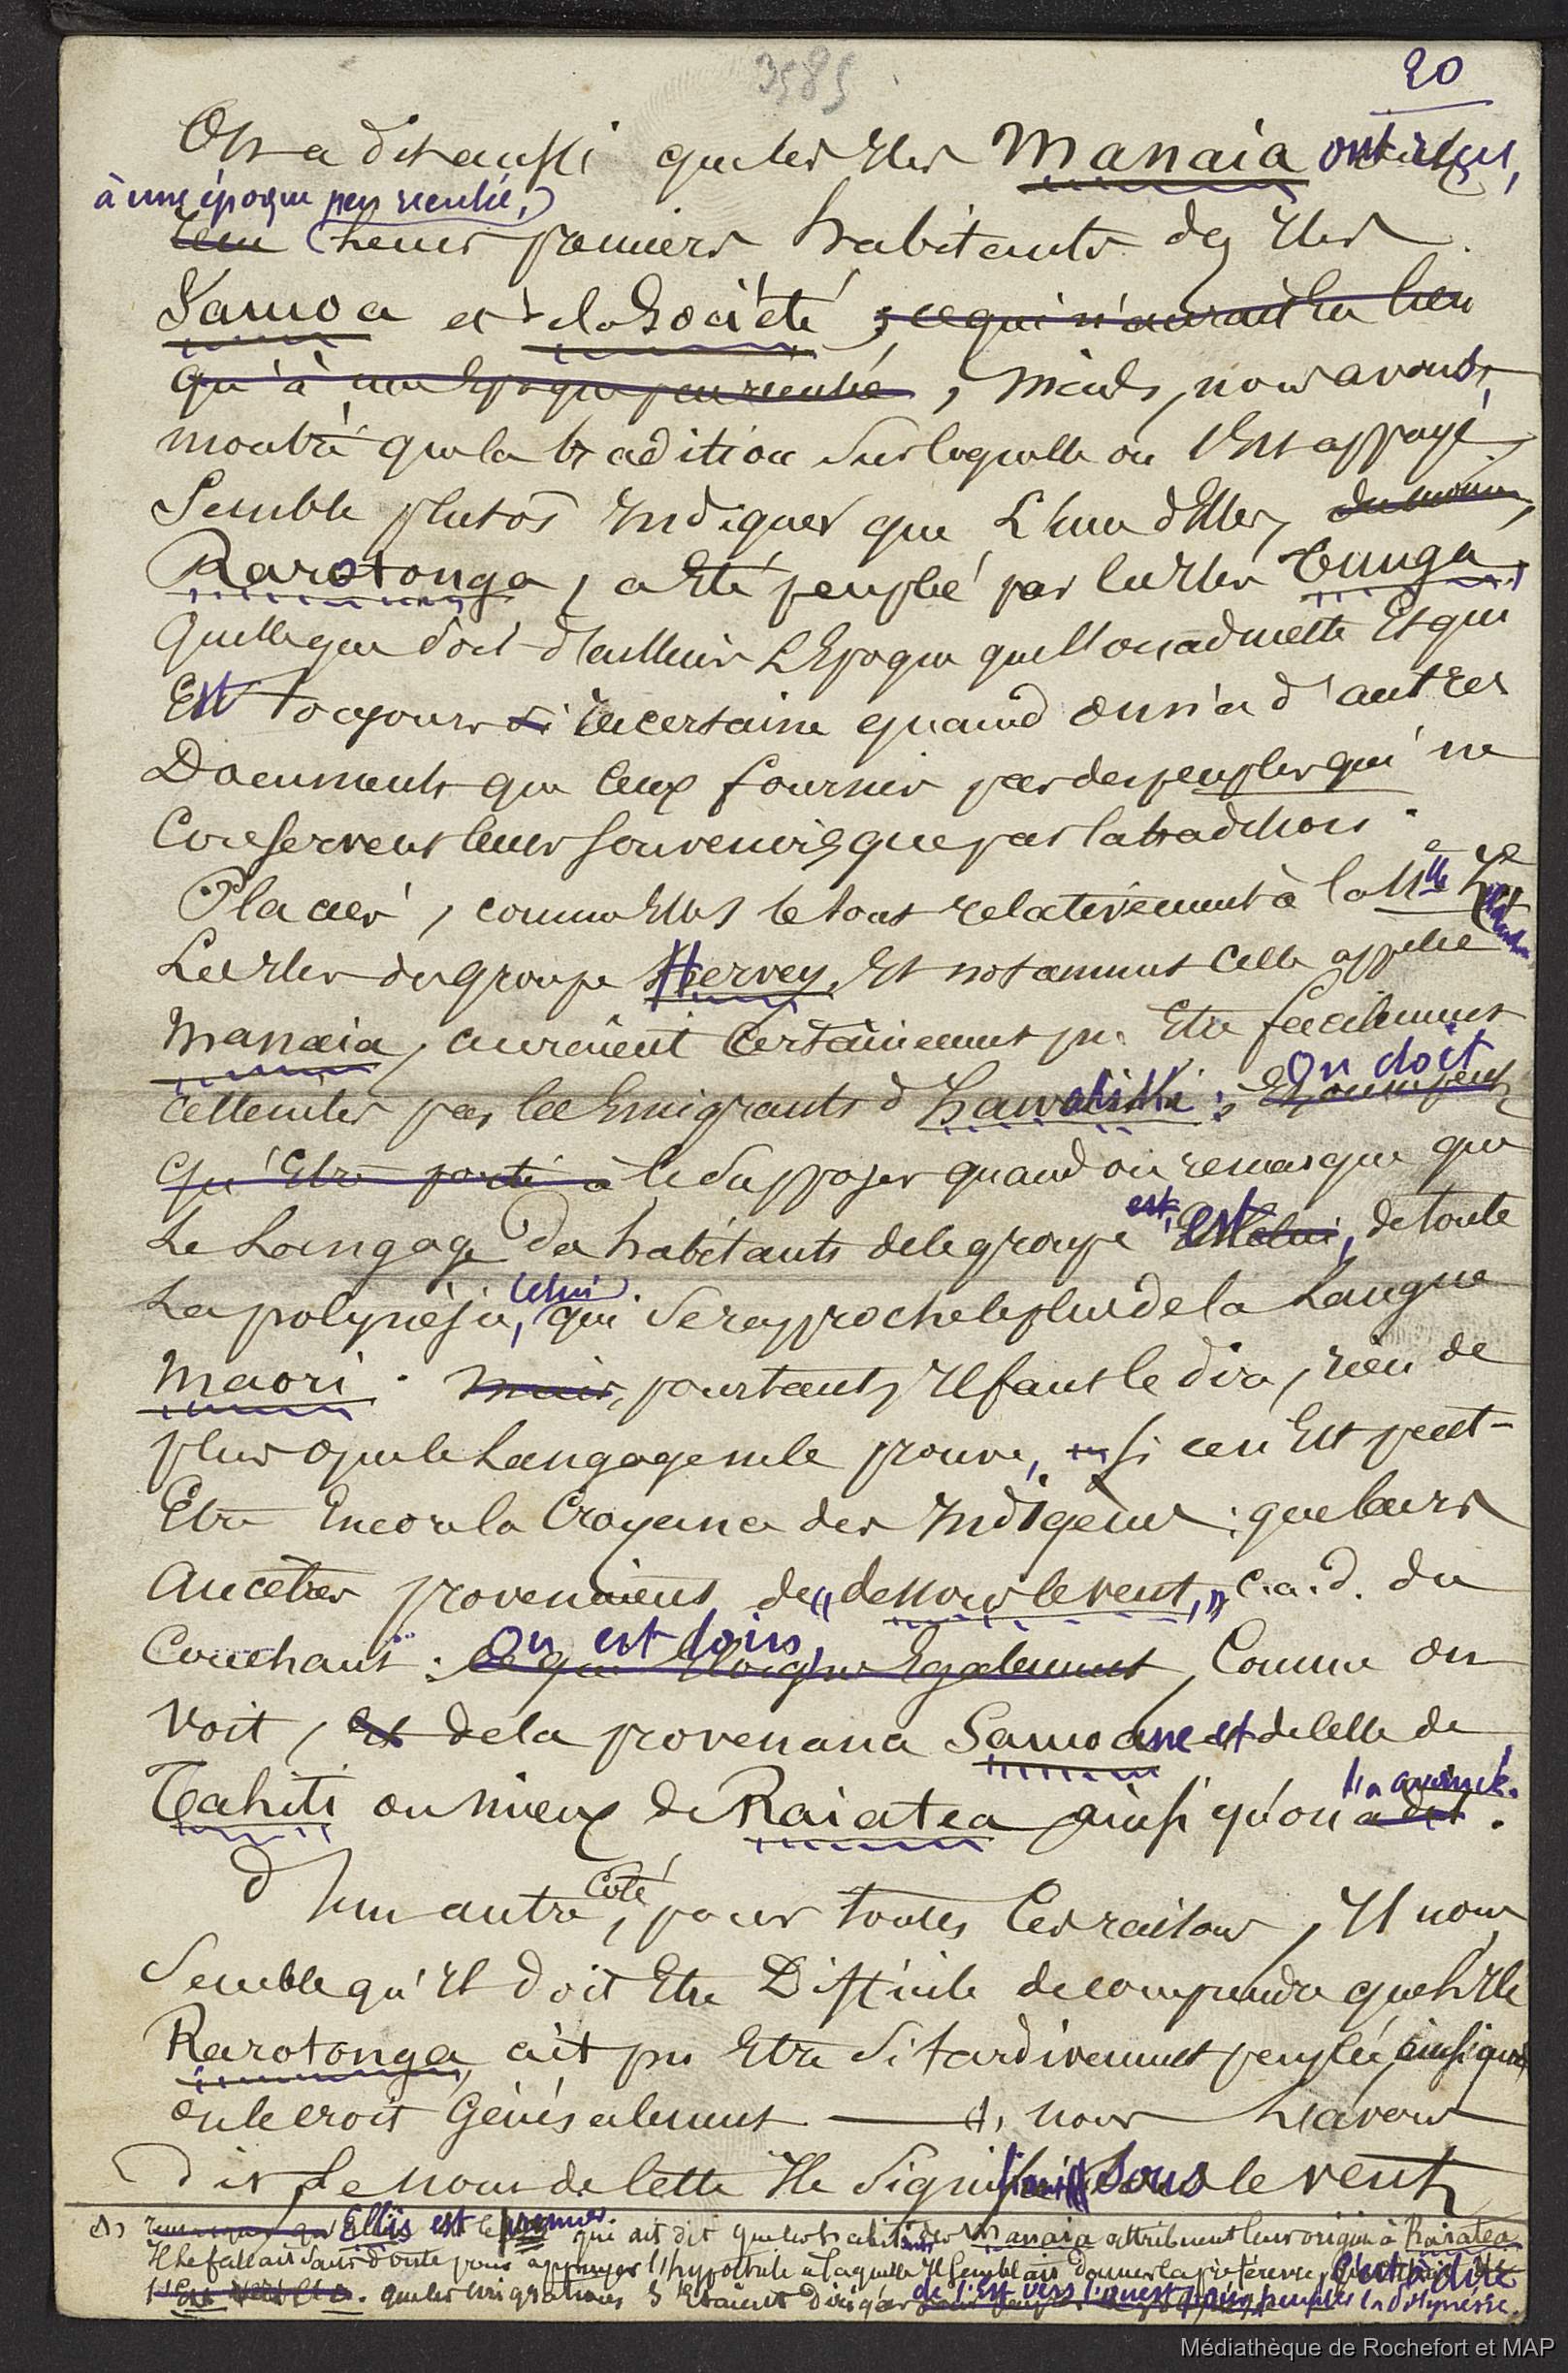 3585
20
On a dit aussi que les Iles Manaia ont reçu,
à une époque peu reculée,
leurs premiers habitants des Iles
Samoa et de la Société ; ce qui n'aurait eu lieu
qu'à une époque peu reculée, mais, nous avons,
montré que la tradition sur laquelle on s'est appuyé,
semble plutôt indiquer que l'une d'Elles, du moins,
Rarotonga, a été peuplée par les Iles Tunga,
quelle que soit d'ailleurs l'Epoque que l'on admette et qui
Est toujours si incertaine quand on n'a d'autres
Documents que ceux fournis par des peuples qui ne
Conservent leurs souvenirs que par la tradition.
Placées, comme Elles le sont relativement à la Nlle Zee
Les Iles du groupe Hervey, et notamment celle appelée
Manaia, auraient certainement pu être facilement
atteintes par les Emigrants d'Hawahiki : On doit
qu'Etre porté à le supposer quand on remarque que
Le Langage des habitants de le groupe est, de toute
La polynésie, celui qui se rapproche le plus de la Langue
Maori. mais, pourtant, il faut le dire, rien de
plus que le Langage ne le prouve, si ce n'Est peut-
Etre Encore la Croyance des Indigènes : que leurs
Ancêtres provenaient de "dessous le vent," c.a.d. du
Couchant : On est loin,
ce qui éloigne Egalement, Comme on
voit, et de la provenance Samoane et de celle de
Tahiti ou mieux de Raiatea ainsi qu'on l'a avancé.
D'un autre côté, pour toutes ces raisons, Il nous
Semble qu'Il doit Etre Difficile de comprendre que l'Ile
Rarotonga, ait pu Etre si tardivement peuplée, ainsi qu'
on le croit Généralement — nous l'avons
dit, Le nom de cette Ile signifie sous le vent,
(1) remarquons que Ellis est le premier qui ait dit que les habitants des Manaia attribuent leur origine à Raiatea
Il le fallait sans doute pour appuyer l'hypothèse à laquelle Il semblait donner la préférence, c'est à dire
que les émigrations s'étaient dirigées de l'Est vers l'ouest pour peupler la Polynésie.
Médiathèque de Rochefort et MAP